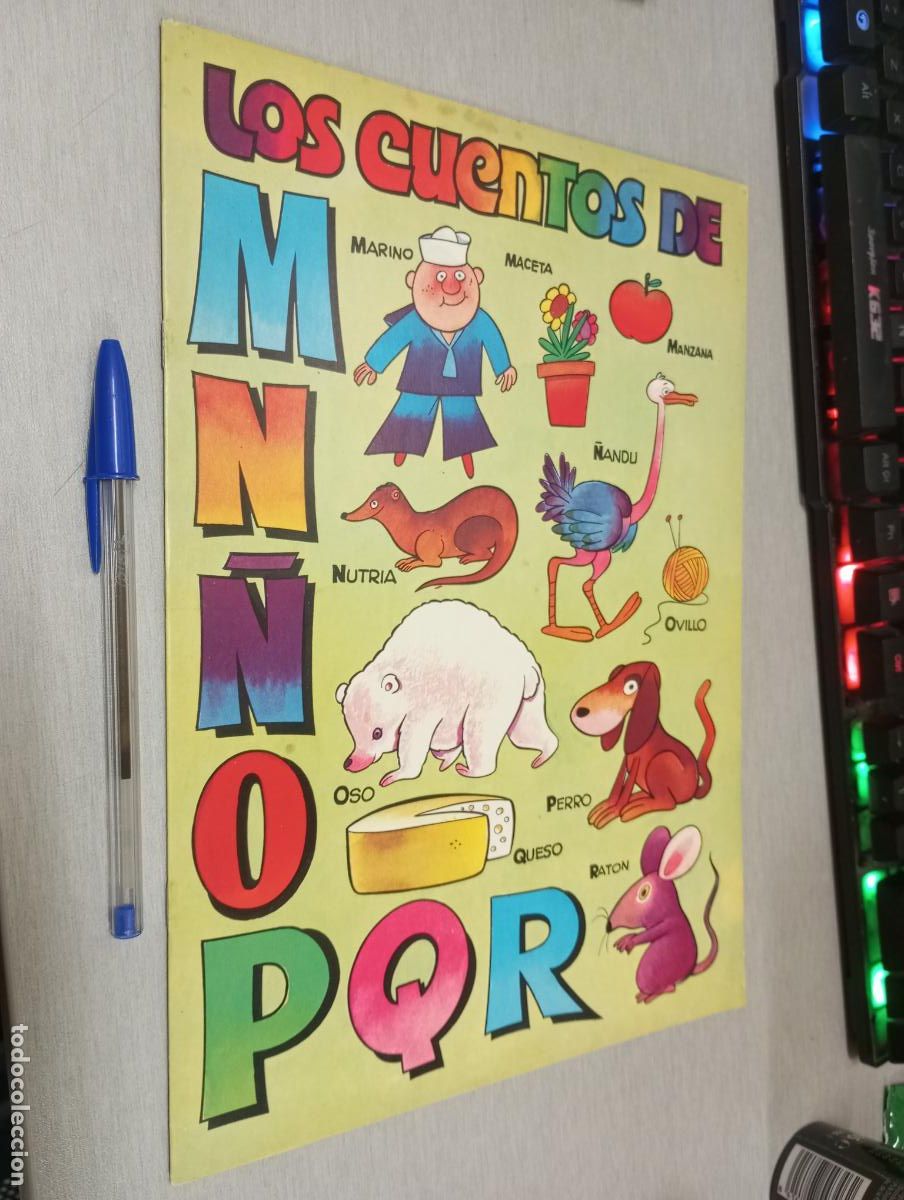 LOS CUENTOS DE
M
N
Ñ
O
PQR
MARINO
MACETA
MANZANA
ÑANDU
NUTRIA
OVILLO
OSO
PERRO
QUESO
RATON
todocoleccion.net